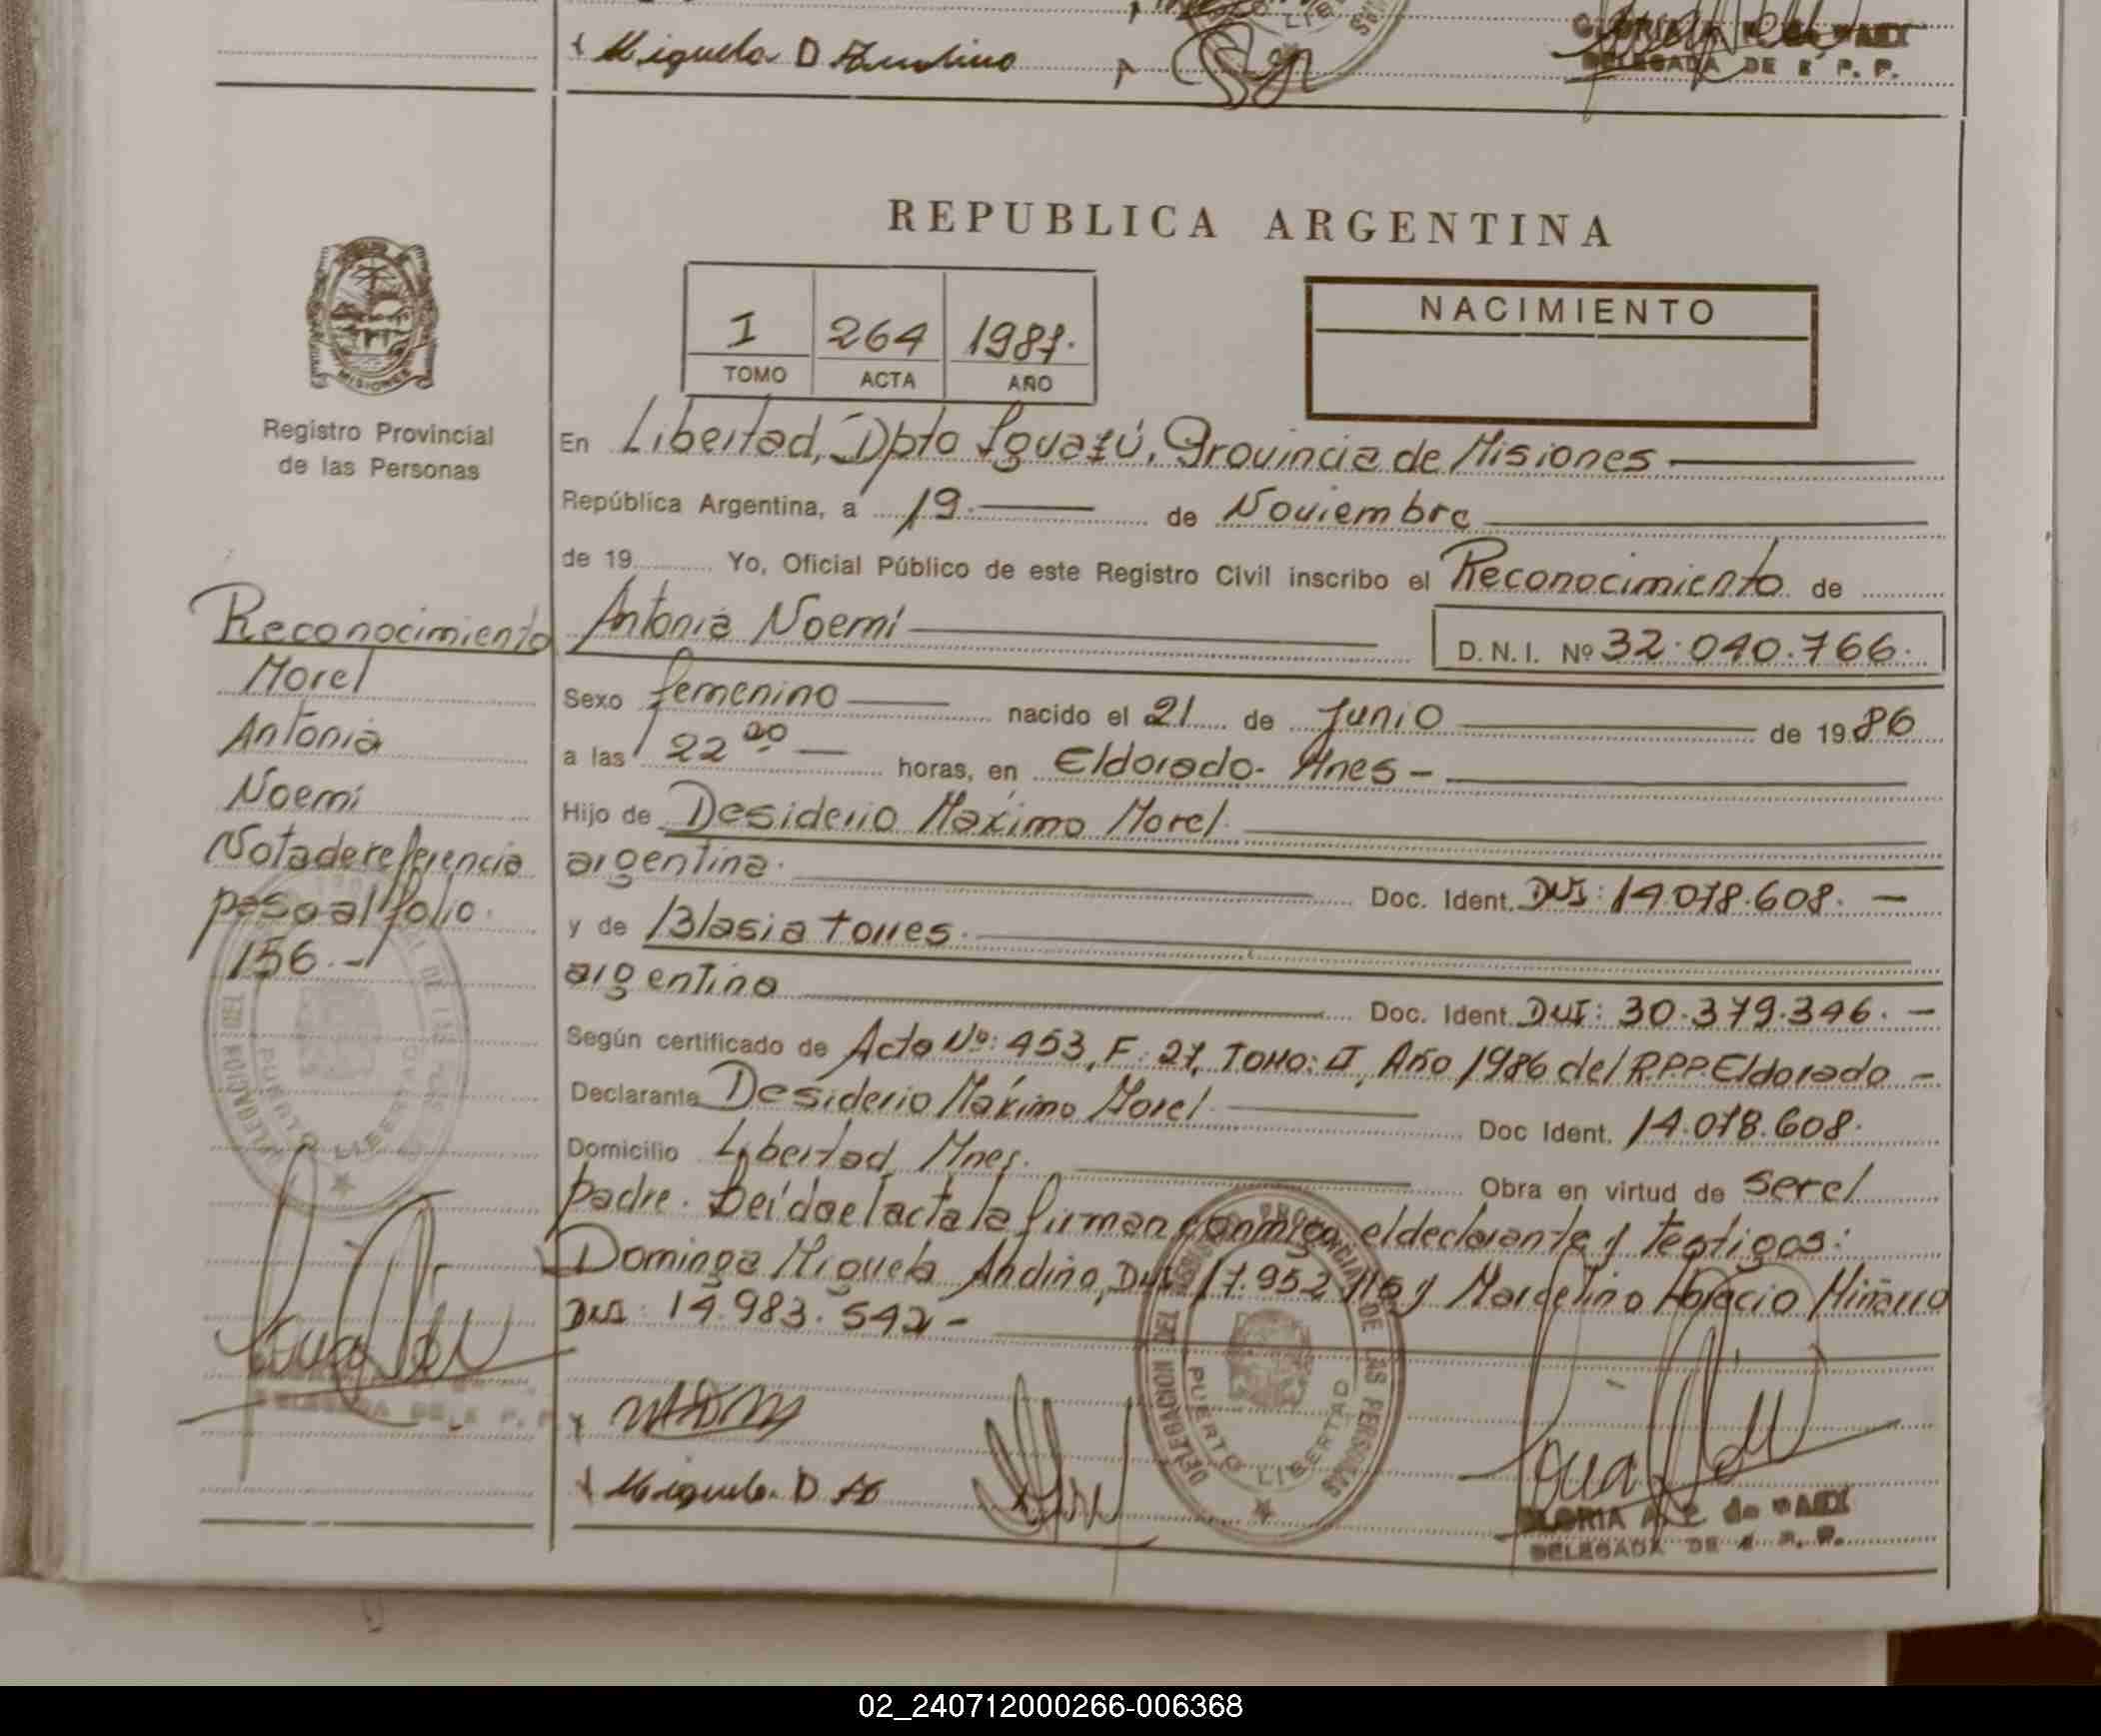 Miguela D Andino
DELEGADA DE R P. P.
REPUBLICA ARGENTINA
NACIMIENTO
I 264 1987.
TOMO ACTA AÑO
MISIONES
Registro Provincial
de las Personas
En Libertad, Dpto Iguazú, Provincia de Misiones
República Argentina, a 19. de Noviembre
de 19 Yo, Oficial Público de este Registro Civil inscribo el Reconocimiento de
Antonia Noemi D.N.I. Nº 32.040.766.
Sexo femenino nacido el 21 de Junio de 1986
a las 22 00 horas, en Eldorado. Mnes -
Hijo de Desiderio Maximo Morel.
argentina. Doc. Ident. DNI: 14.078.608. -
y de Blasia Torres.
argentina Doc. Ident. DNI: 30.379.346. -
Según certificado de Acta Nº: 453, F: 27, TOMO: II, Año 1986 del RPP Eldorado -
Declarante Desiderio Máximo Morel. Doc Ident. 14.078.608.
Domicilio Libertad, Mnes. Obra en virtud de ser el
padre. Leída el acta la firman conmigo el declarante y testigos:
Dominga Miguela Andino, DNI 17.952.116 y Marcelino Horacio Miñarro
DNI: 14.983.542 -
Miguela. D
DELEGACION DEL REGISTRO PROVINCIAL DE LAS PERSONAS
PUERTO LIBERTAD
GLORIA A. de
DELEGADA DE R. P. P.
Reconocimiento
Morel
Antonia
Noemi
Nota de referencia
pasa al folio.
156. -
PUERTO LIBERTAD
DELEGADA DE R P. P.
02_240712000266-006368